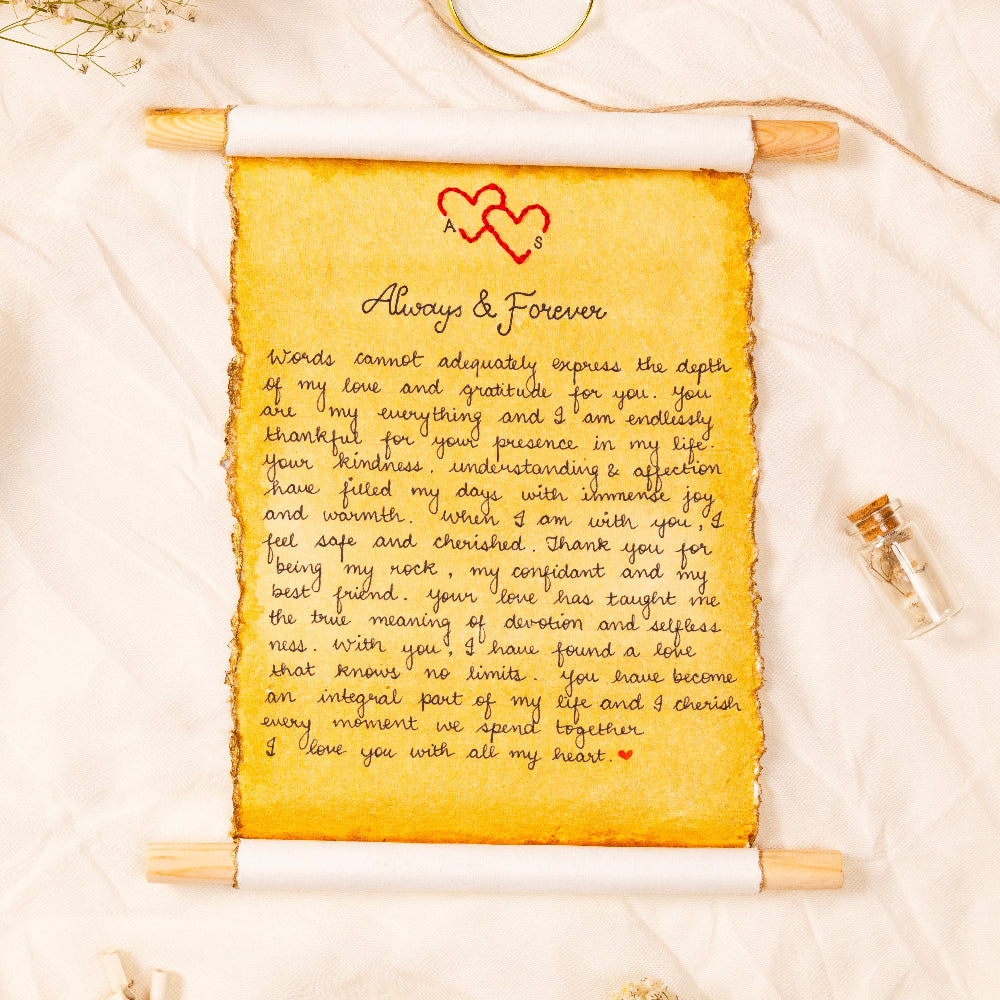 A
S
Always & Forever
Words cannot adequately express the depth
of my love and gratitude for you. You
are my everything and I am endlessly
thankful for your presence in my life.
Your kindness, understanding & affection
have filled my days with immense joy
and warmth. When I am with you, I
feel safe and cherished. Thank you for
being my rock, my confidant and my
best friend. Your love has taught me
the true meaning of devotion and selfless
ness. With you, I have found a love
that knows no limits. You have become
an integral part of my life and I cherish
every moment we spend together
I love you with all my heart. ❤